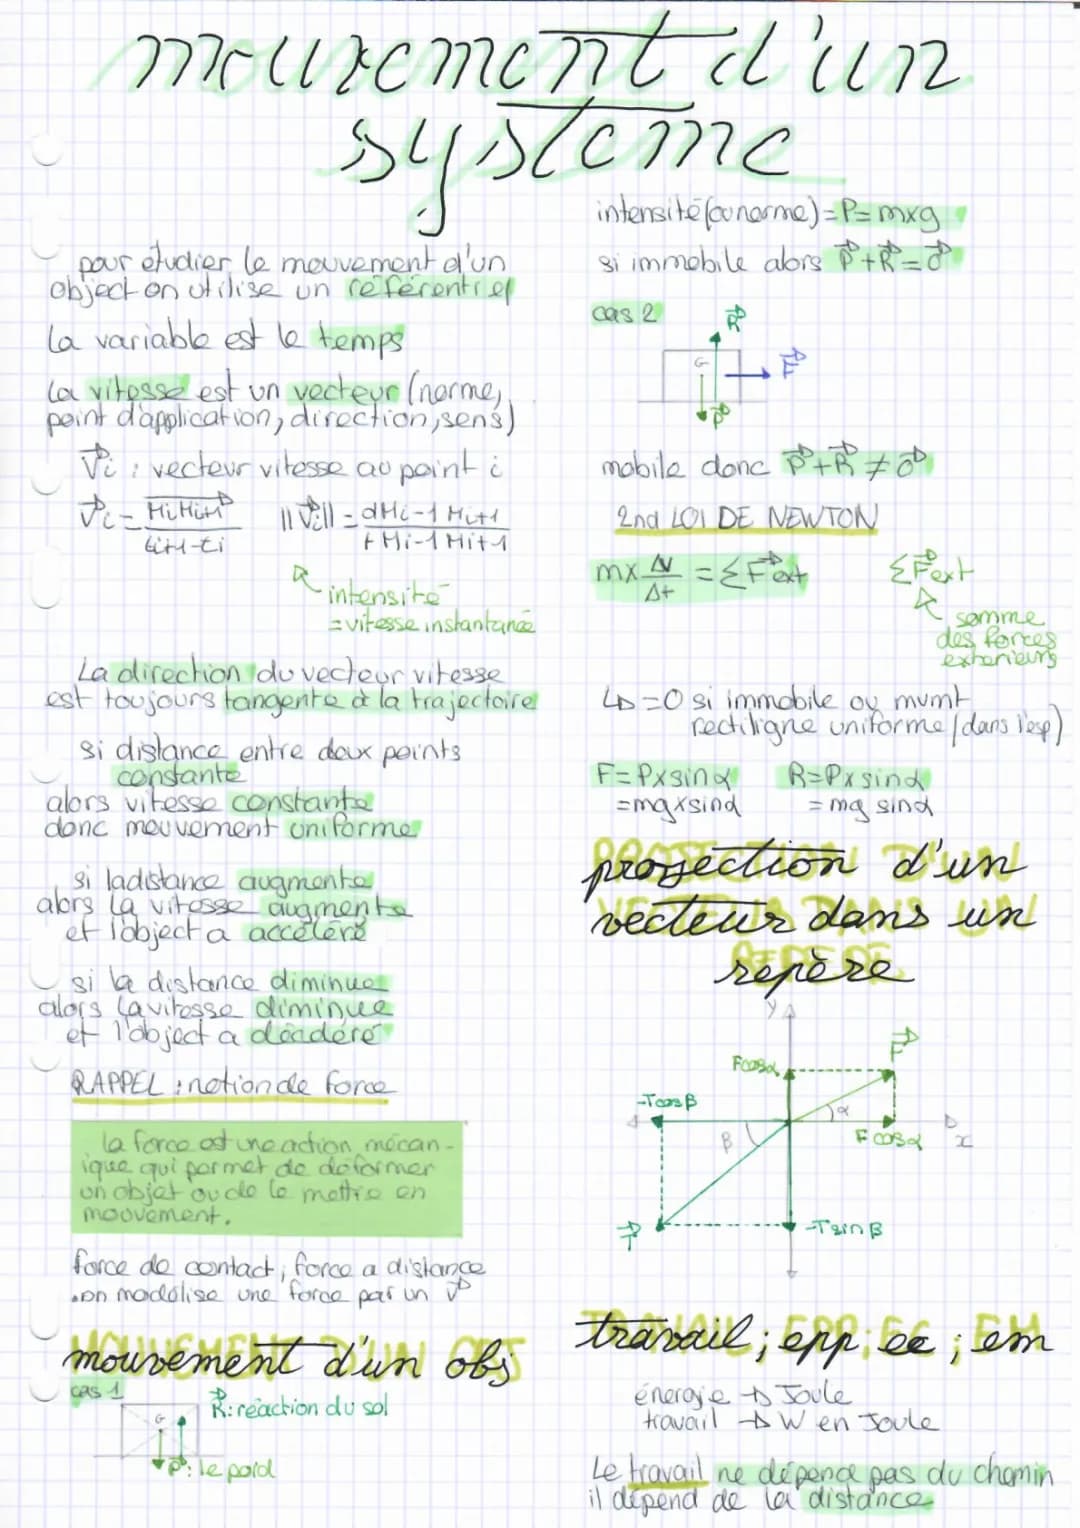 mouvement d'un
système
pour étudier le mouvement d'un
object on utilise un référentiel
La variable est le temps
La vitesse est un vecteur (norme,
point d'application, direction, sens)
V⃗i : vecteur vitesse au point i
V⃗i = MiMi+1 / ti+1-ti   ||V⃗i|| = dMi-1 Mi+1 / tMi-1 Mi+1
intensité
= vitesse instantanée
La direction du vecteur vitesse
est toujours tangente à la trajectoire
si distance entre deux points
constante
alors vitesse constante
donc mouvement uniforme
si la distance augmente
alors la vitesse augmente
et l'object a accéléré
si la distance diminue
alors la vitesse diminue
et l'object a décéléré
RAPPEL : notion de force
la force est une action mécan-
ique qui permet de déformer
un objet ou de le mettre en
mouvement.
force de contact ; force a distance
.on modélise une force par un v⃗
MOUVEMENT D'UN OBJ
mouvement d'un obj
cas 1
R⃗: réaction du sol
G
P⃗: le poid
intensité (ou norme) = P = mxg
si immobile alors P⃗+R⃗=0⃗
cas 2
R⃗
G
F⃗
P⃗
mobile donc P⃗+R⃗ ≠ 0⃗
2nd LOI DE NEWTON
mx Δv/Δt = ΣF⃗ext   ΣF⃗ext
somme
des forces
exterieurs
↳ =0 si immobile ou mvmt
rectiligne uniforme (dans l'esp)
F=Pxsinα   R=Pxsinα
=mgxsinα   =mg sinα
PROJECTION D'UN
VECTEUR DANS UN
REPERE
projection d'un
vecteur dans un
repère
y
F⃗
Fcosα
-Tcosβ
α
β
Fcosα
x
T⃗
-Tsinβ
TRAVAIL; EPP; EC; EM
travail ; epp ; ec ; em
énergie → Joule
travail → W en Joule
Le travail ne dépend pas du chemin
il dépend de la distance